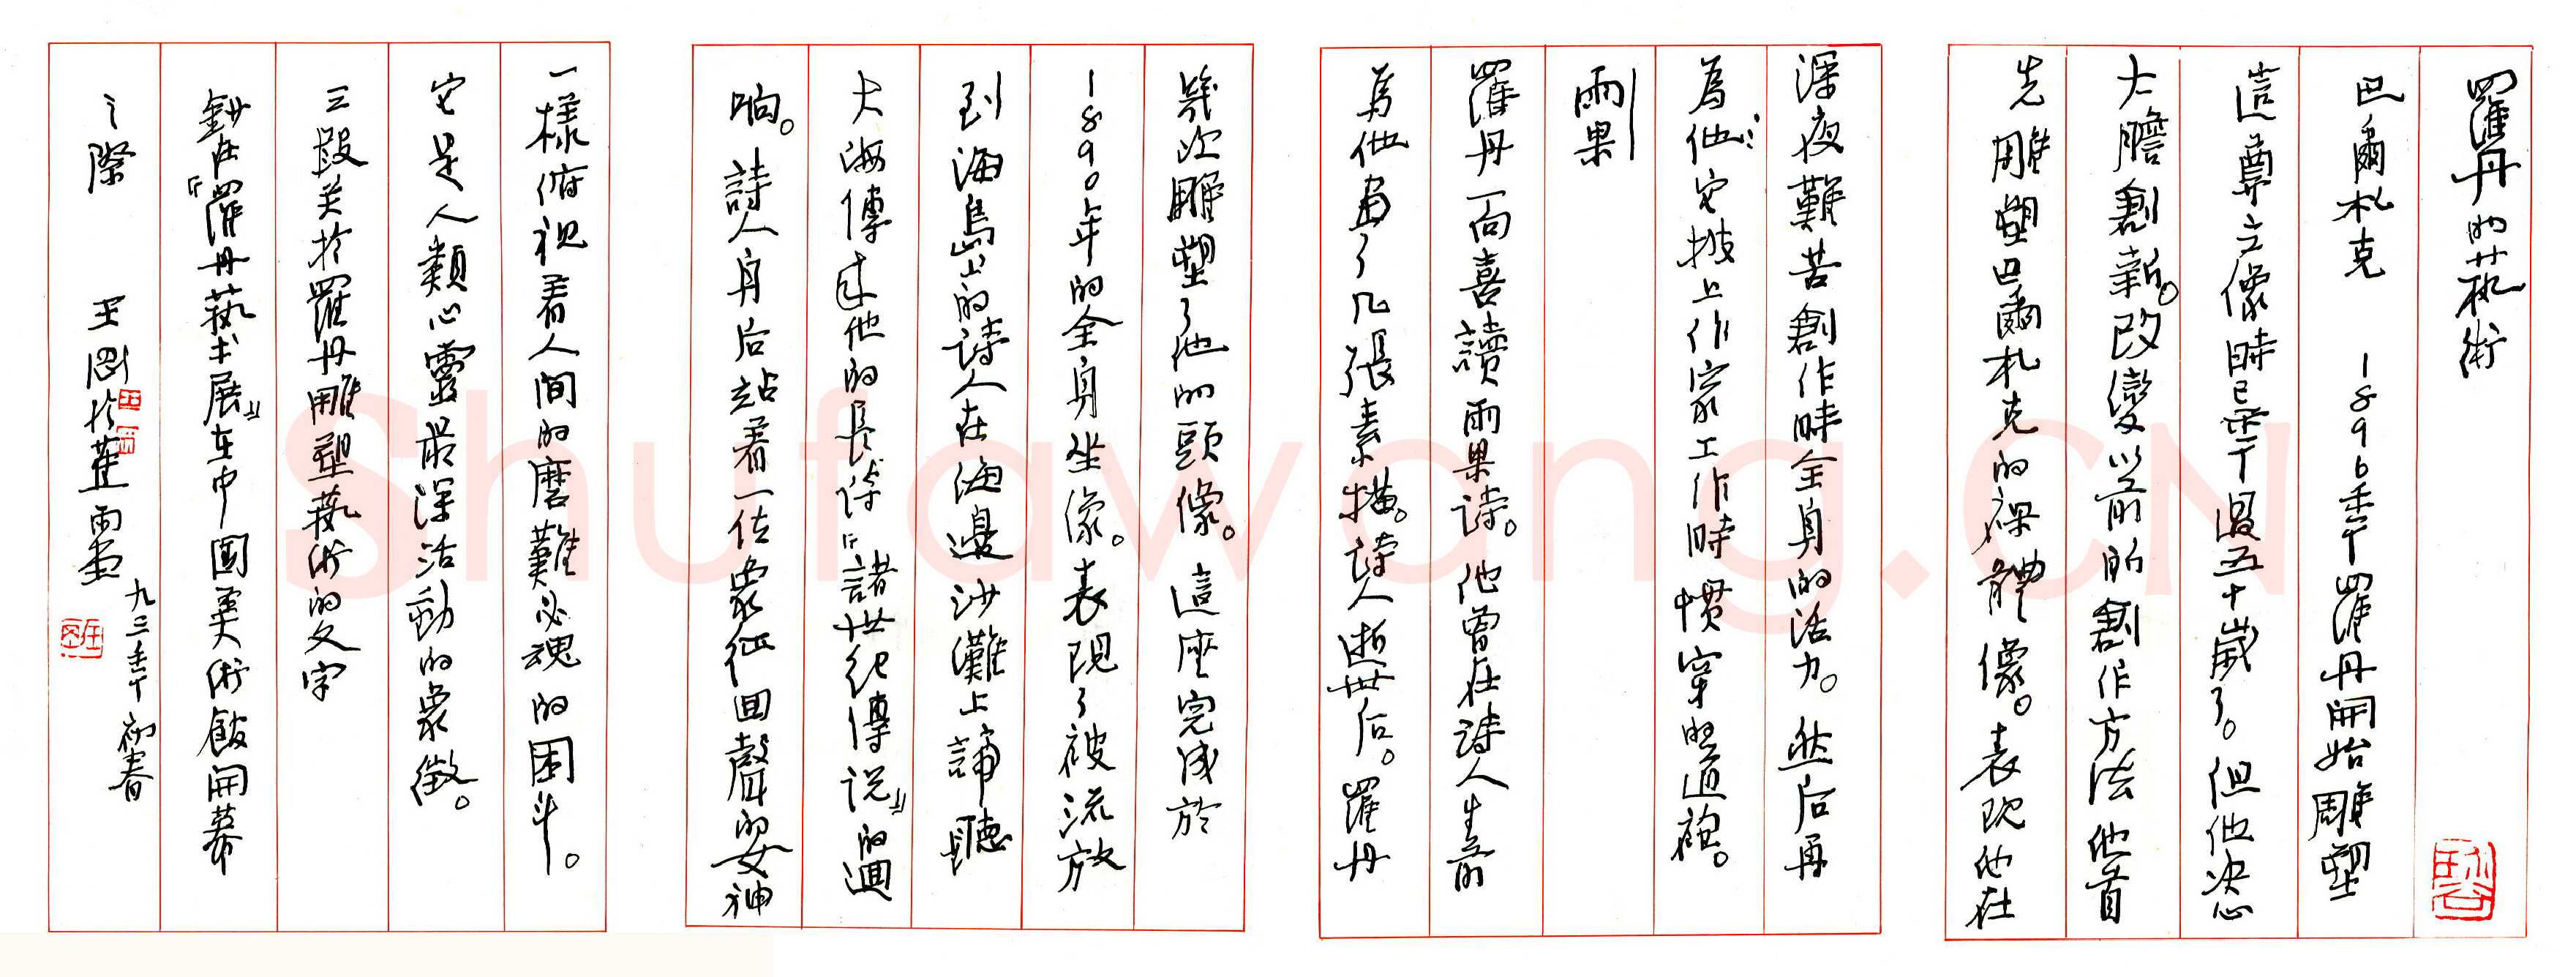 羅丹的藝術
巴爾札克　1896年羅丹開始雕塑
這尊立像時已年過五十歲了。但他决心
大膽創新。改變以前所創作方法他首
先雕塑巴爾札克的裸體像。表現他在
深夜艱苦創作時全身的活力。然后再
為他安披上作家工作時慣穿的道袍。
雨果
羅丹一向喜讀雨果詩。他曾在詩人生前
為他画了几張素描。詩人逝世后。羅丹
幾次雕塑了他的頭像。這座完成於
1890年的全身坐像。表現了被流放
到海島的詩人在海邊沙灘上諦聽
大海傳来他的長詩『諸世紀傳说』的迴
响。詩人身后站着一位象征回聲的女神
一樣俯視着人間的磨難必魂的困斗。
它是人類心靈最深活動的象徵。
三段关於羅丹雕塑藝術的文字
鈔在『羅丹藝术展』在中國美術館開幕
之際　王剛於
九三年初春
Shufawang.CN